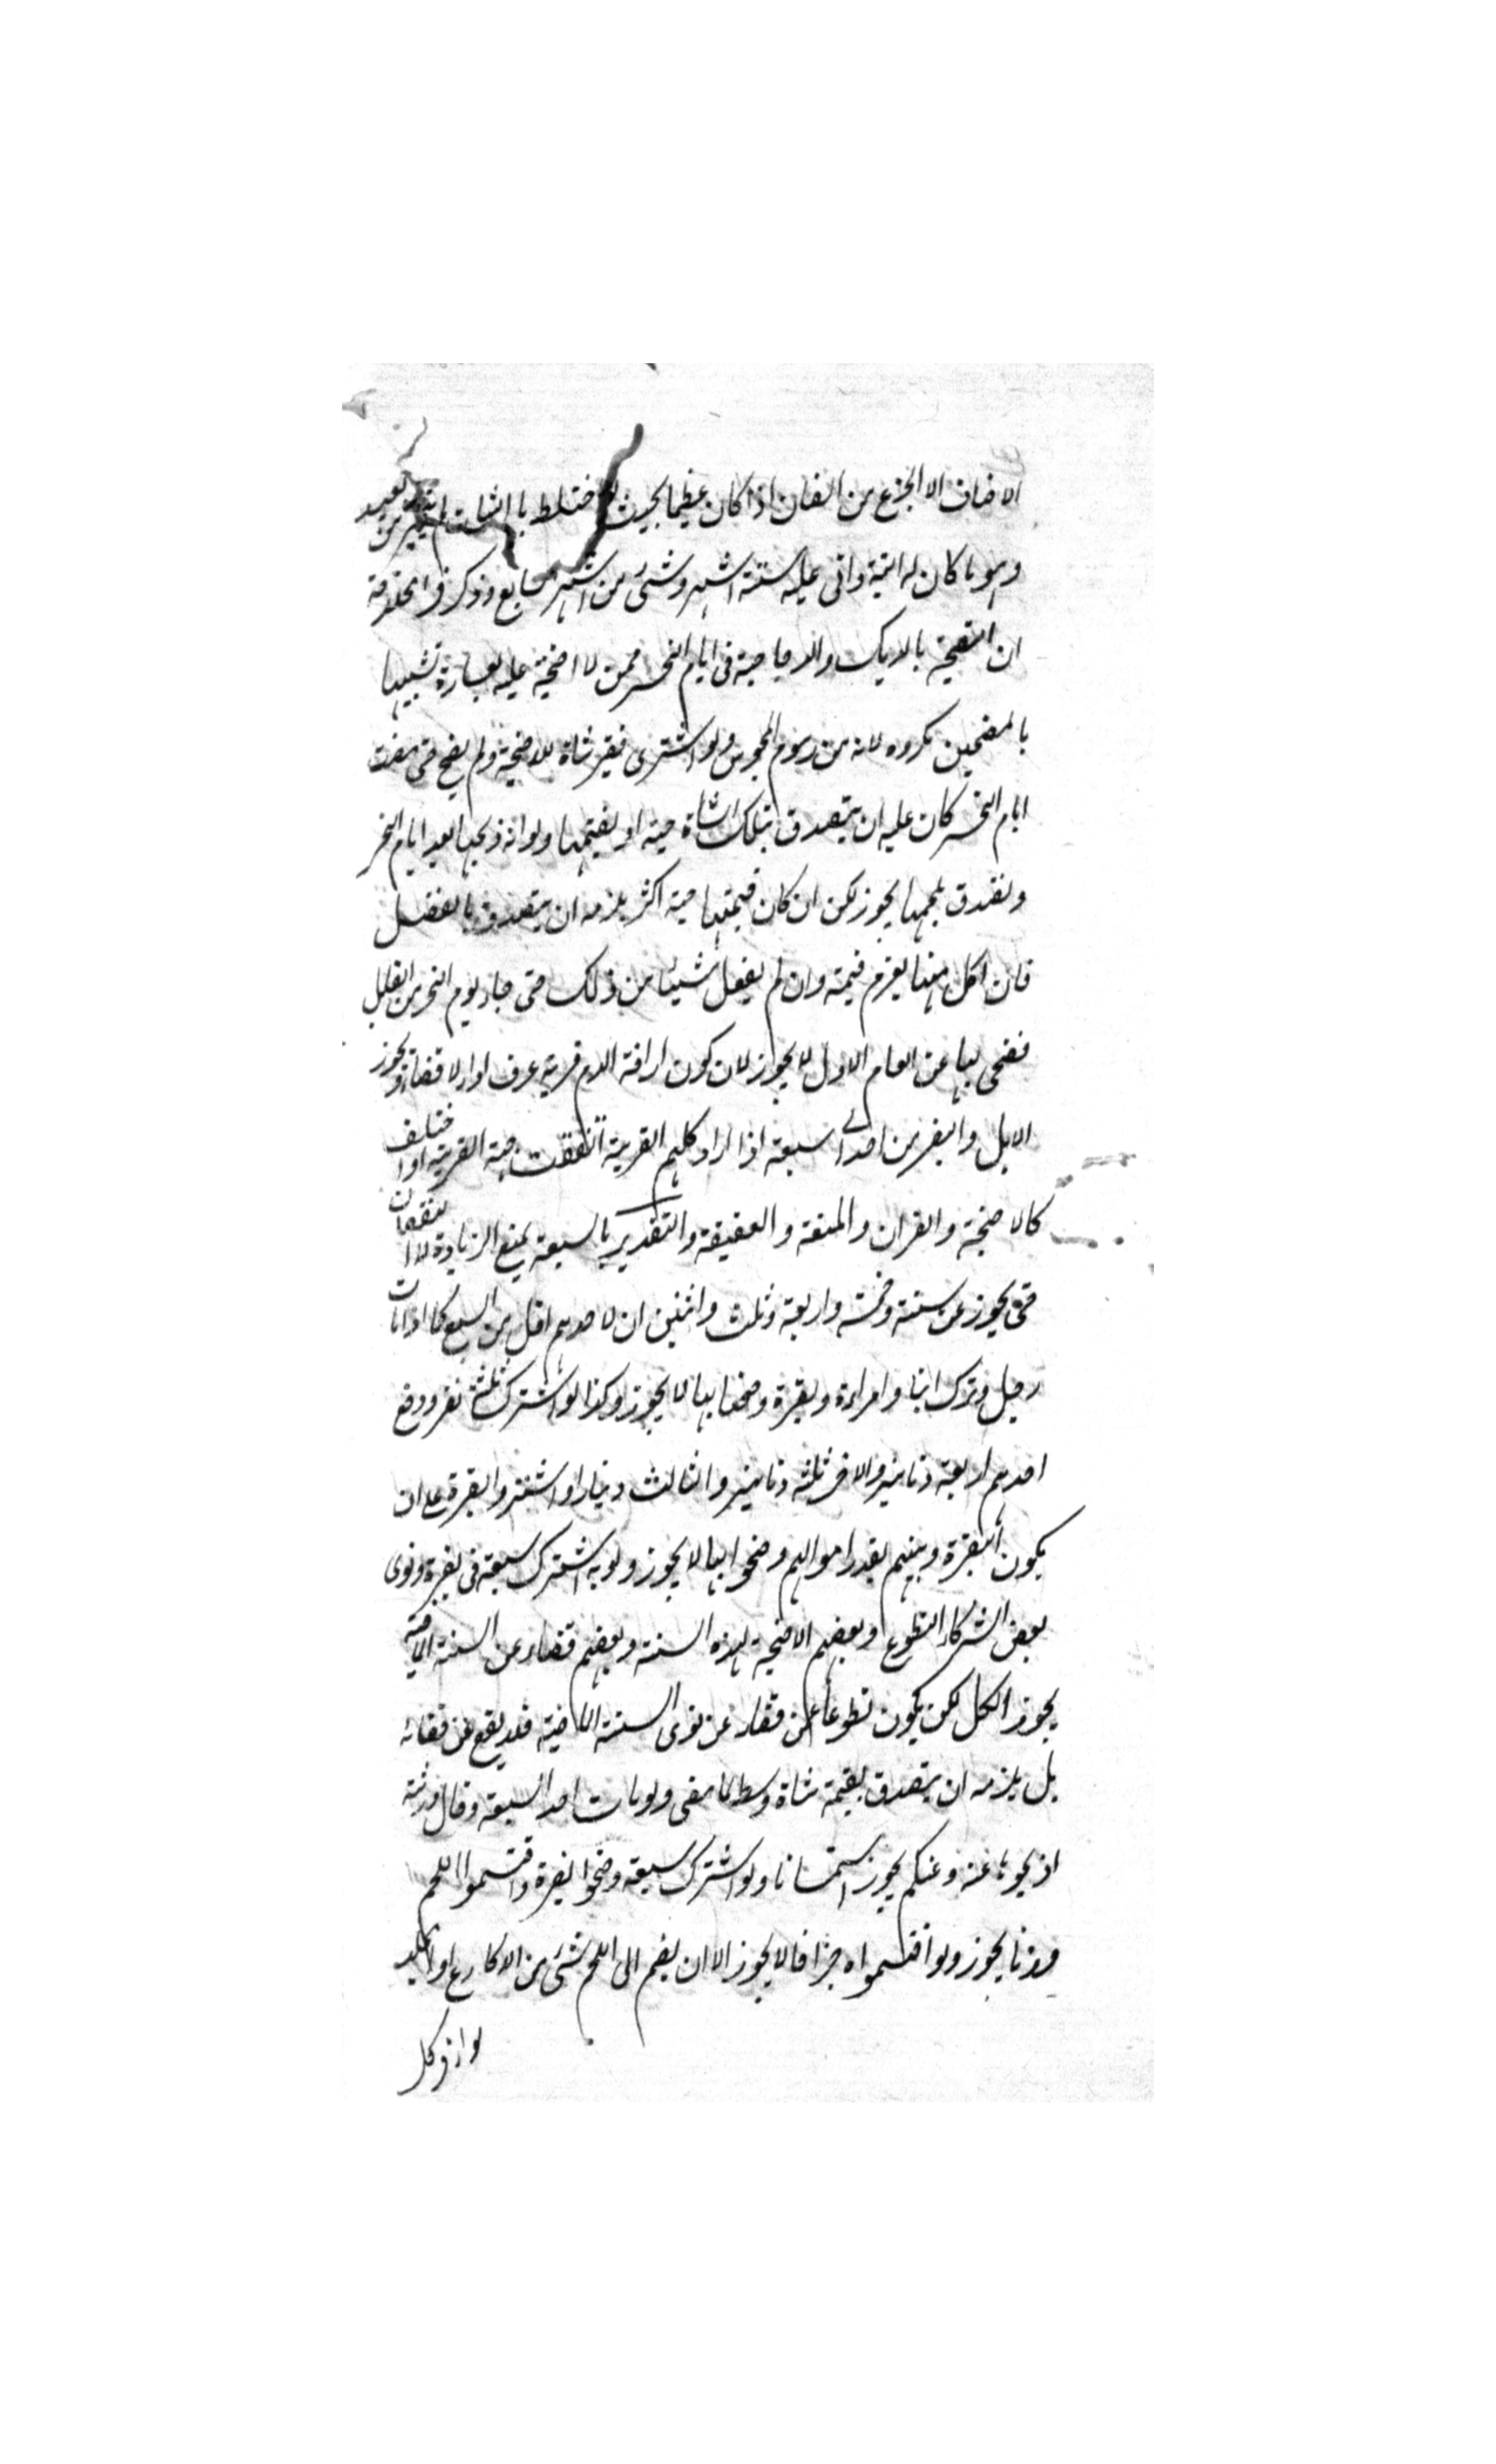 الاضاف الا الجزع من الضان اذا كان عظيما بحيث لو اختلط بالثنيات لم يتميز من بعيد
وهو ما كان له الية واتى عليه ستة اشهر وشئ من الشهر السابع وذكر فى الخلاصة
ان التضحية بالديك والدجاجة فى ايام النحر ممن لا اضحية عليه لعسارة تشبيها
بالمضحين مكروه لانه من رسوم المجوس ولو اشترى فقير شاة للاضحية ولم يضح حتى مضت
ايام النحر كان عليه ان يتصدق بتلك الشاة حية او بقيمتها ولو انه ذبحها بعد ايام النحر
وتصدق بلحمها يجوز لكن ان كان قيمتها حية اكثر يلزمه ان يتصدق بالفضل
فان اكل منها يغرم قيمته وان لم يفعل شيئا من ذلك حتى جاء يوم النحر من القابل
فضحى بها عن العام الاول لا يجوز لان كون اراقة الدم قربة عرف اداء لا قضاء ويجوز
الابل والبقر من احد الى سبعة اذا اراد كلهم القربة اتفقت جهة القربة او اختلف
كالاضحية والقران والمتعة والعقيقة والتقدير بالسبعة يمنع الزيادة لا النقصان
حتى يجوز عن ستة وخمسة واربعة وثلث واثنين ان لاحدهم اقل من السبع كما اذا مات
رجل وترك ابنا وامراءة وبقرة وضحيا بها لا يجوز وكذا لو اشترك ثلثة نفر ودفع
احدهم اربعة دنانير والاخر ثلثة دنانير والثالث دينارا واشتروا بقرة على ان
يكون البقرة وبينهم بقدر اموالهم وضحوا بها لا يجوز ولو به اشترك سبعة فى بقرة ونوى
بعض الشركاء التطوع وبعضهم الاضحية لهذه السنة وبعضهم قضاء عن السنة الماضية
يجوز الكل لكن يكون تطوعا عن قضاء عن نوى السنة الماضية فلا يقع عن قضائه
بل يلزمه ان يتصدق بقيمة شاة وسط لما مضى ولو مات احد السبعة وقال ورثته
اذبحوها عنه وعنكم يجوز استحسانا ولو اشترك سبعة وضحوا بقرة واقتسموا اللحم
وزنا يجوز ولو اقتسمواه جزافا لا يجوز الا ان يضم الى اللحم شئ من الاكارع او الجلد